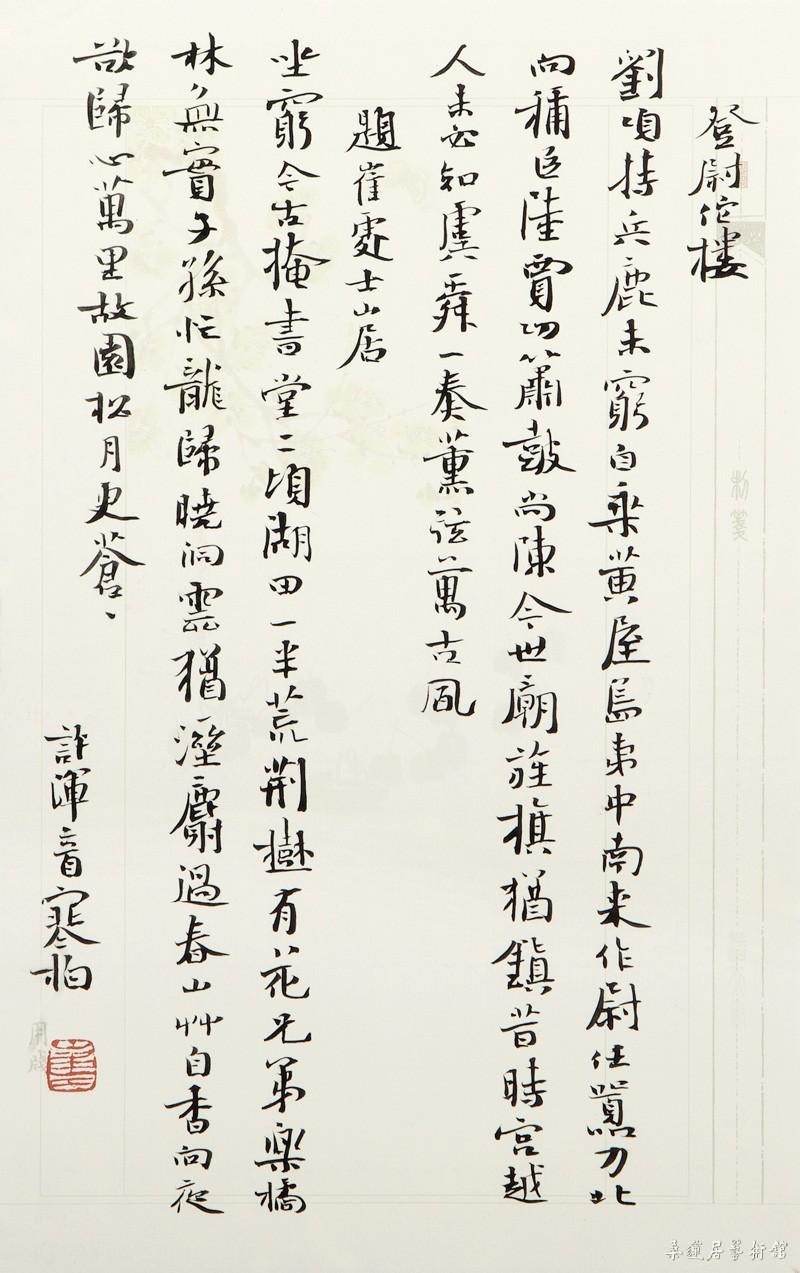 登尉佗樓
劉項持兵鹿未窮自乘黃屋島夷中南來作尉任囂力北
向稱臣陸賈功簫鼓尚陳今世廟旌旗猶鎮昔時宮越
人未必知虞舜一奏薰弦萬古風
題崔處士山居
坐窮今古掩書堂二頃湖田一半荒荊樹有花兄弟樂橘
林無實子孫忙龍歸曉洞雲猶溼麝過春山艸自香向夜
欲歸心萬里故園松月更蒼、
許渾音寒柏
桑蓮居藝術館